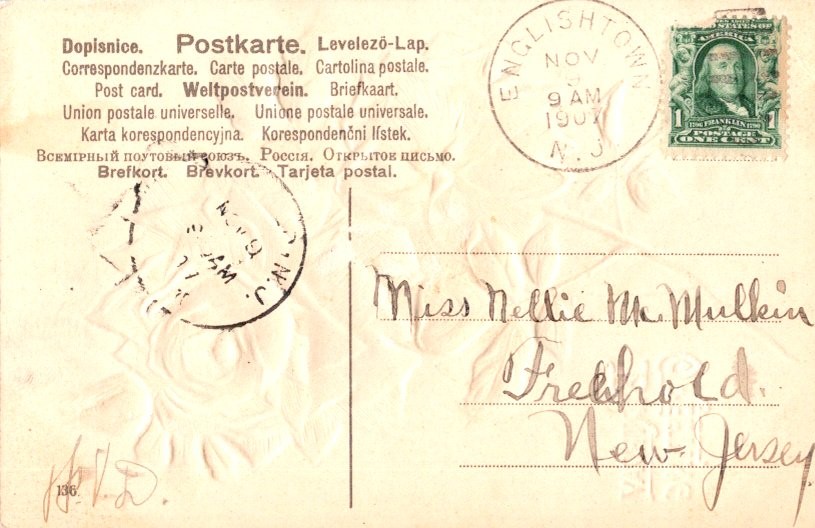 Dopisnice. Postkarte. Levelező-Lap.
Correspondenzkarte. Carte postale. Cartolina postale.
Post card. Weltpostverein. Briefkaart.
Union postale universelle. Unione postale universale.
Karta korespondencyjna. Korespondenční lístek.
Всемірный почтовый союзъ. Россія. Открытое письмо.
Brefkort. Brevkort. Tarjeta postal.
ENGLISHTOWN
NOV
9 AM
1907
N.J.
UNITED STATES OF
AMERICA
1706 FRANKLIN 1790
1 POSTAGE 1
ONE CENT
NOV 9
AM
N.J.
Miss Nellie Mc Mulkin
Freehold.
New Jersey
136